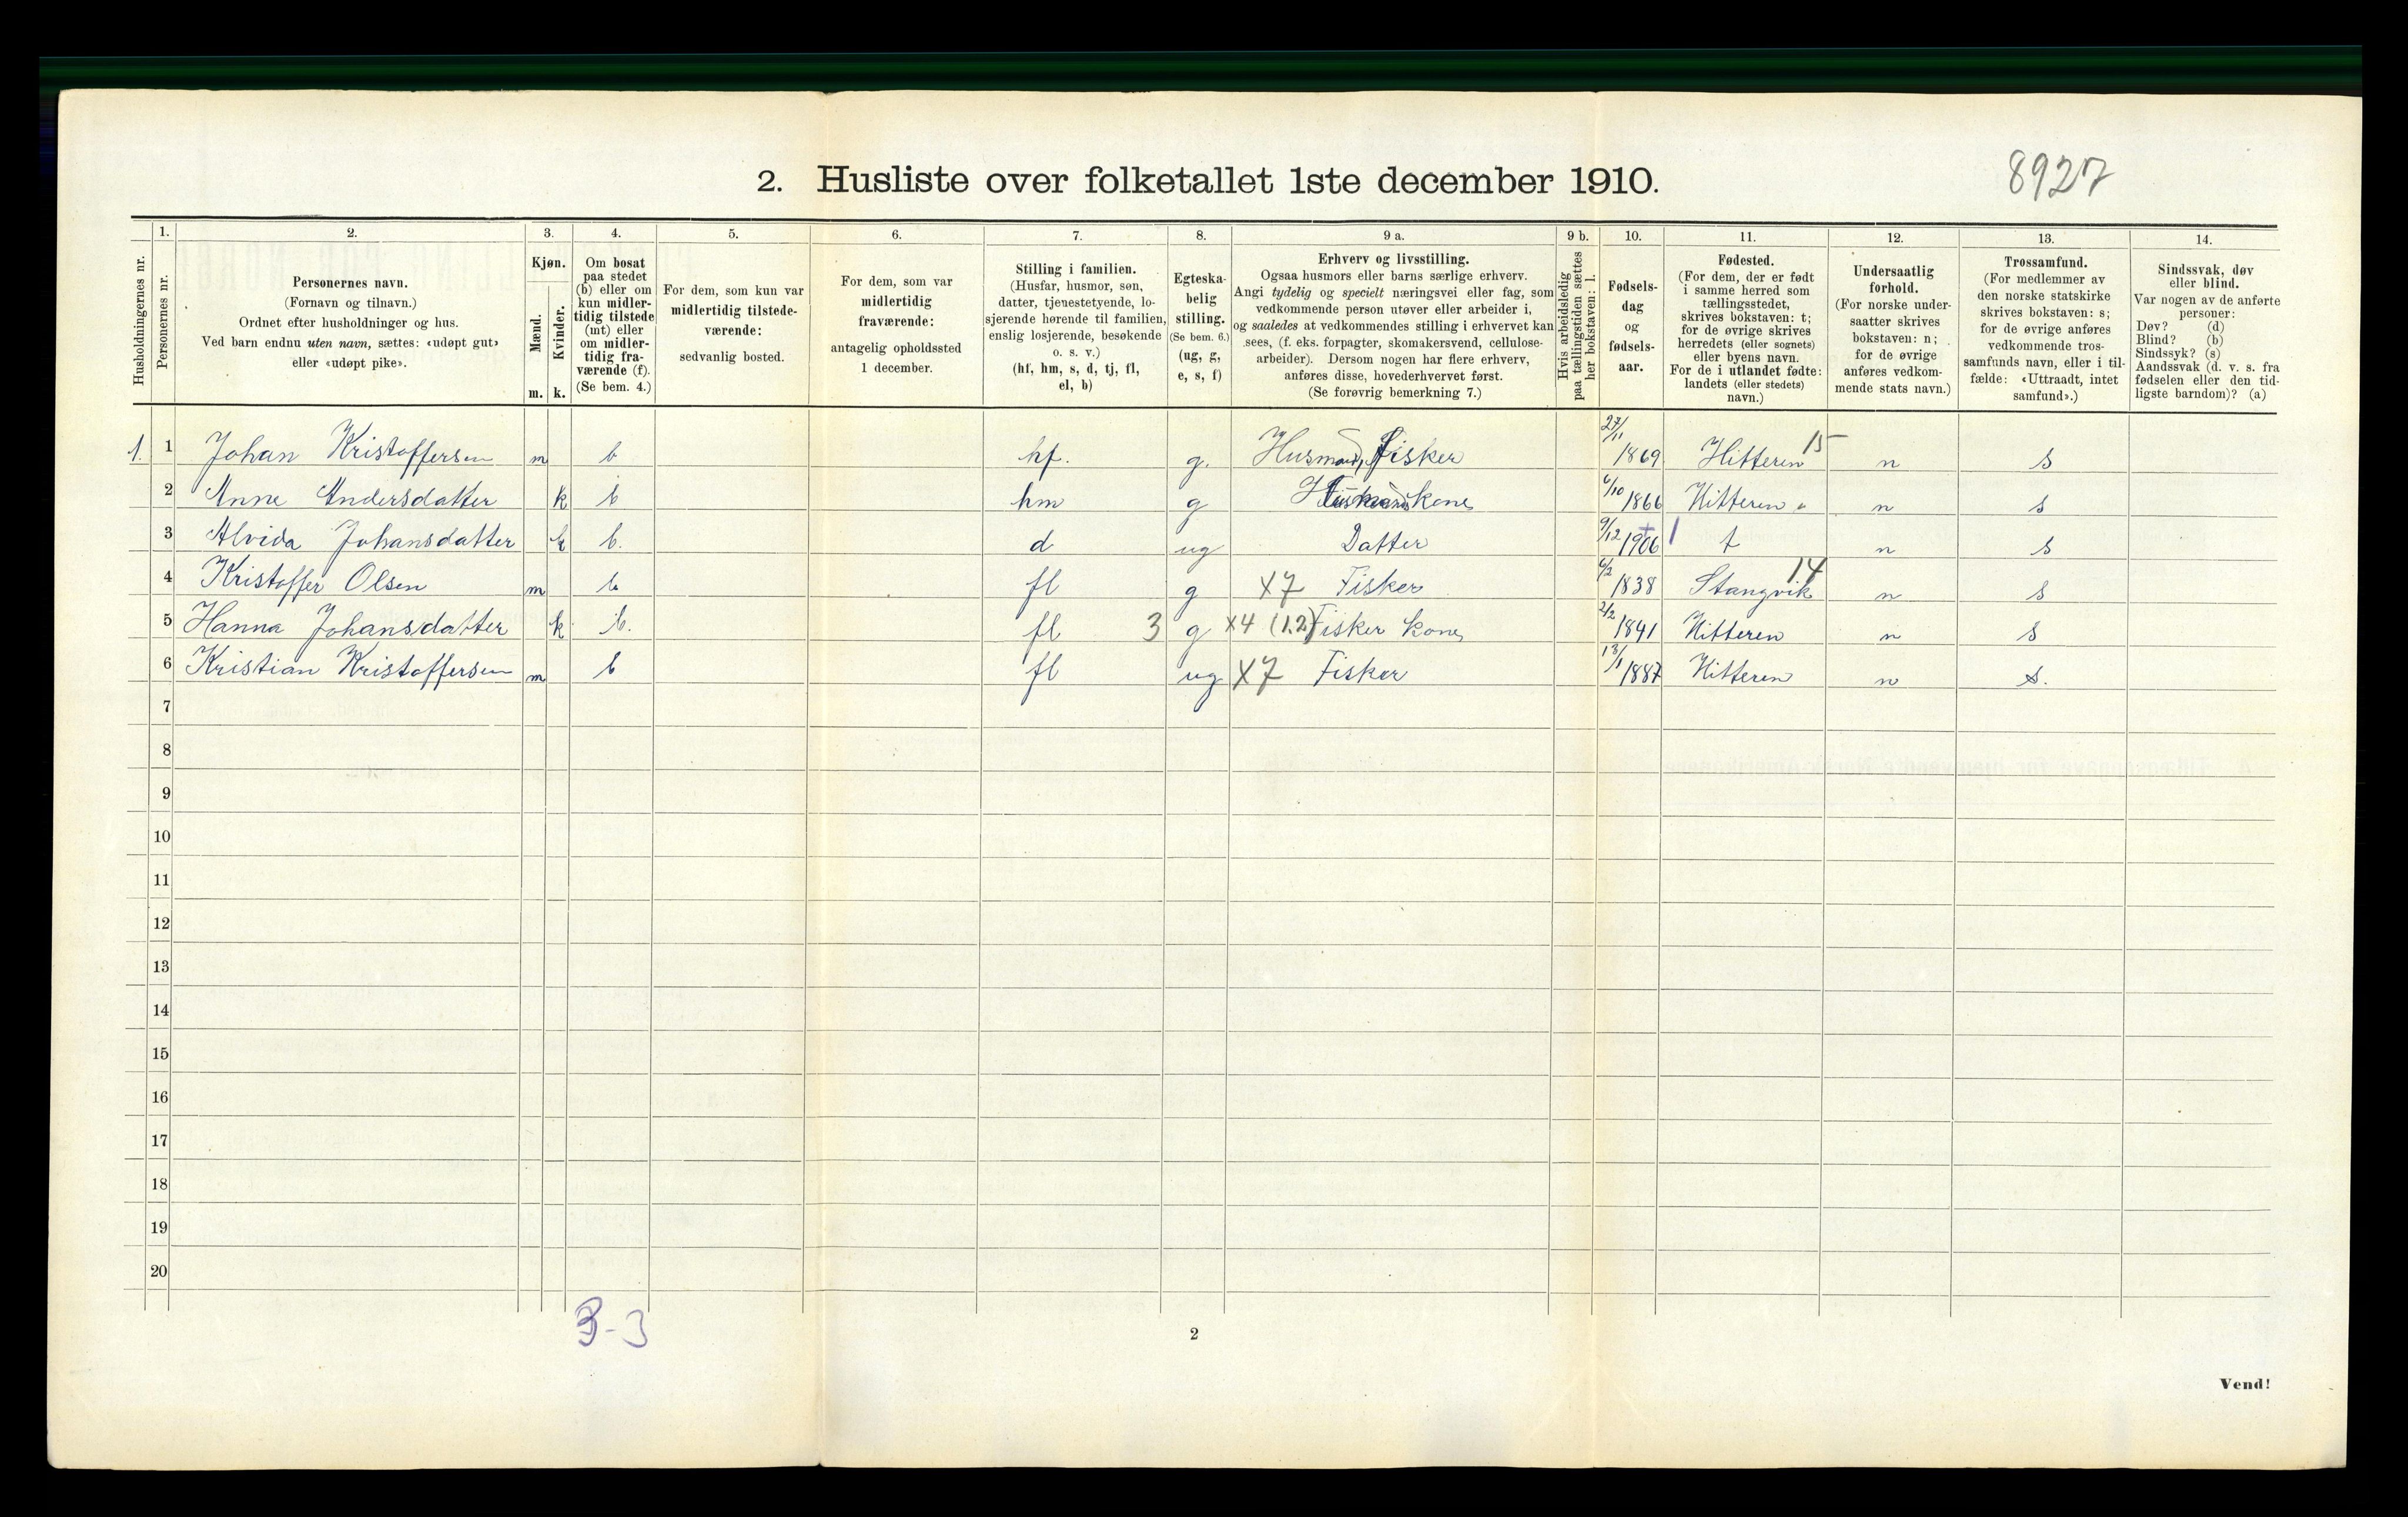 8927
2. Husliste over folketallet 1ste december 1910.
Husholdningernes nr.
1. Personernes nr.
2. Personernes navn.
(Fornavn og tilnavn.)
Ordnet efter husholdninger og hus.
Ved barn endnu uten navn, sættes: «udøpt gut»
eller «udøpt pike».
3. Kjøn.
Mænd. m.
Kvinder. k.
4. Om bosat
paa stedet
(b) eller om
kun midler-
tidig tilstede
(mt) eller
om midler-
tidig fra-
værende (f).
(Se bem. 4.)
5. For dem, som kun var
midlertidig tilstede-
værende:
sedvanlig bosted.
6. For dem, som var
midlertidig
fraværende:
antagelig opholdssted
1 december.
7. Stilling i familien.
(Husfar, husmor, søn,
datter, tjenestetyende, lo-
sjerende hørende til familien,
enslig losjerende, besøkende
o. s. v.)
(hf, hm, s, d, tj, fl,
el, b)
8. Egteska-
belig
stilling.
(Se bem. 6.)
(ug, g,
e, s, f)
9 a. Erhverv og livsstilling.
Ogsaa husmors eller barns særlige erhverv.
Angi tydelig og specielt næringsvei eller fag, som
vedkommende person utøver eller arbeider i,
og saaledes at vedkommendes stilling i erhvervet kan
sees, (f. eks. forpagter, skomakersvend, cellulose-
arbeider). Dersom nogen har flere erhverv,
anføres disse, hovederhvervet først.
(Se forøvrig bemerkning 7.)
9 b. Hvis arbeidsledig
paa tællingstiden sættes
her bokstaven: l.
10. Fødsels-
dag
og
fødsels-
aar.
11. Fødested.
(For dem, der er født
i samme herred som
tællingsstedet,
skrives bokstaven: t;
for de øvrige skrives
herredets (eller sognets)
eller byens navn.
For de i utlandet fødte:
landets (eller stedets)
navn.)
12. Undersaatlig
forhold.
(For norske under-
saatter skrives
bokstaven: n;
for de øvrige
anføres vedkom-
mende stats navn.)
13. Trossamfund.
(For medlemmer av
den norske statskirke
skrives bokstaven: s;
for de øvrige anføres
vedkommende tros-
samfunds navn, eller i til-
fælde: «Uttraadt, intet
samfund».)
14. Sindssvak, døv
eller blind.
Var nogen av de anførte
personer:
Døv? (d)
Blind? (b)
Sindssyk? (s)
Aandssvak (d. v. s. fra
fødselen eller den tid-
ligste barndom)? (a)
1. 1 Johan Kristoffersen m b hf. g. Husmand, Fisker 27/11 1869 Hitteren 15 n s
2 Anne Andersdatter k b hm g kone 6/10 1866 Hitteren " n s
3 Alvida Johansdatter k b. d ug Datter 9/12 1906 t n s
4 Kristoffer Olsen m b fl g X7 Fisker 6/2 1838 Stangvik 14 n s
5 Hanna Johansdatter k b. fl 3 g X4 (1.2) Fisker kone 2/2 1841 Hitteren n s
6 Kristian Kristoffersen m b fl ug X7 Fisker 13/1 1887 Hitteren n s.
7
8
9
10
11
12
13
14
15
16
17
18
19
20
3-3
2
Vend!